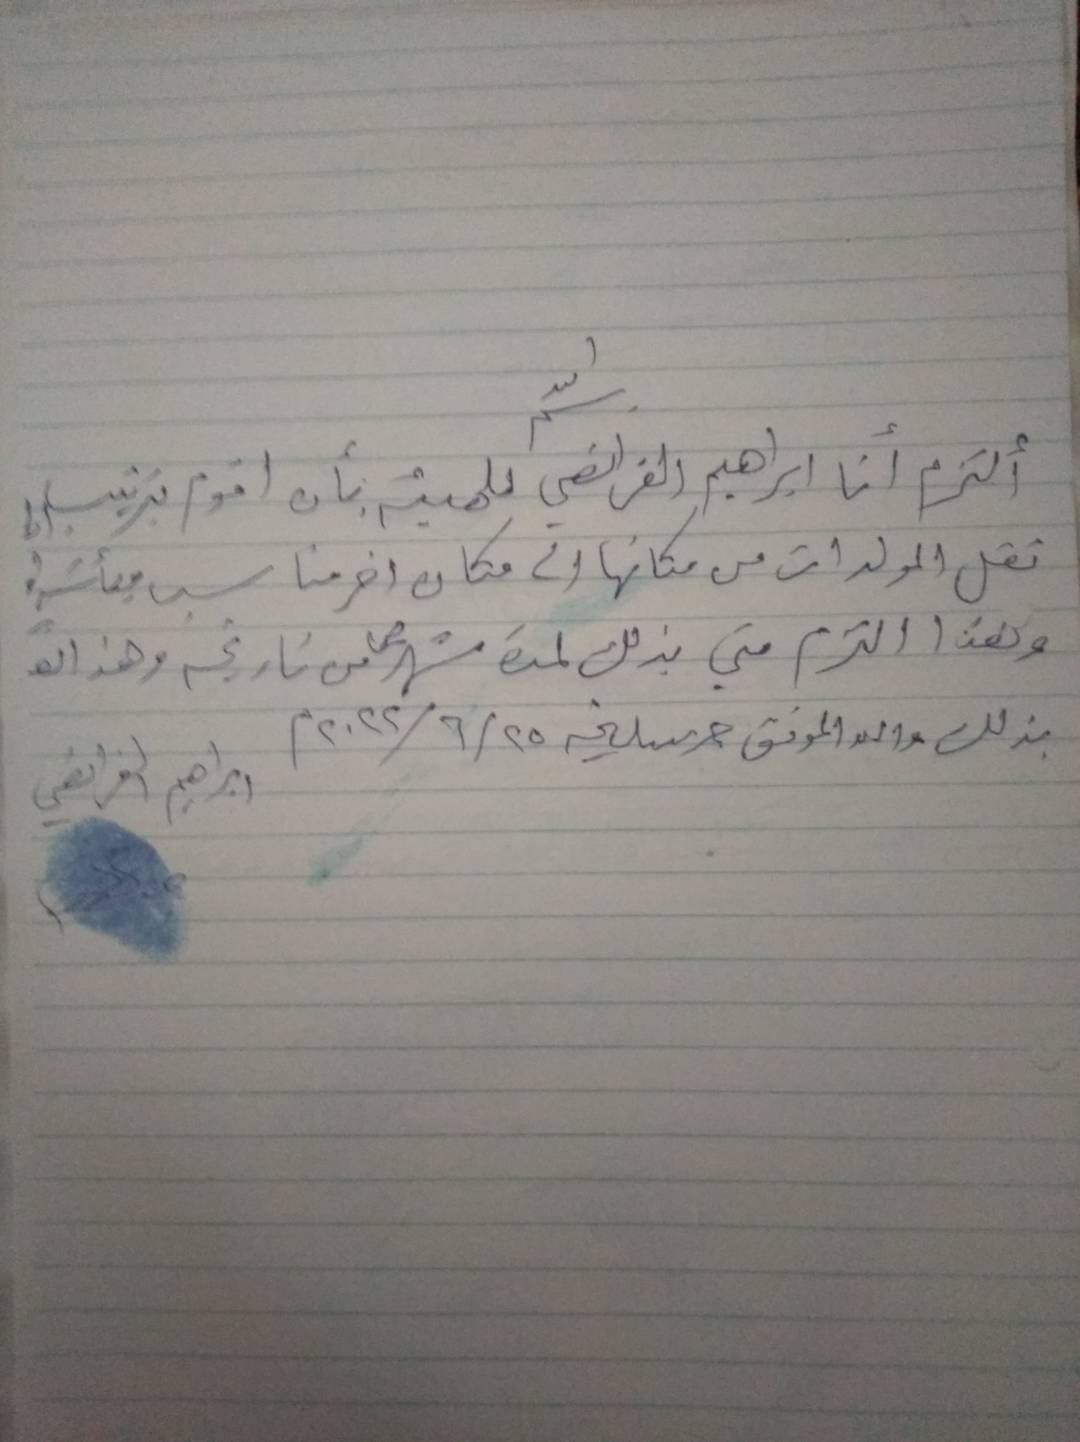 بسم الله
ألتزم أنا ابراهيم الفرائضي للهيئة بأن اقوم بترتيب
نقل المولدات من مكانها الى مكان اخر مناسب
وهذا التزم مني بذلك لمدة شهر من تاريخه وهذا
بذلك والله الموفق حرر بتاريخه ٢٥/٦/٢٠٢٢م
ابراهيم الفرائضي